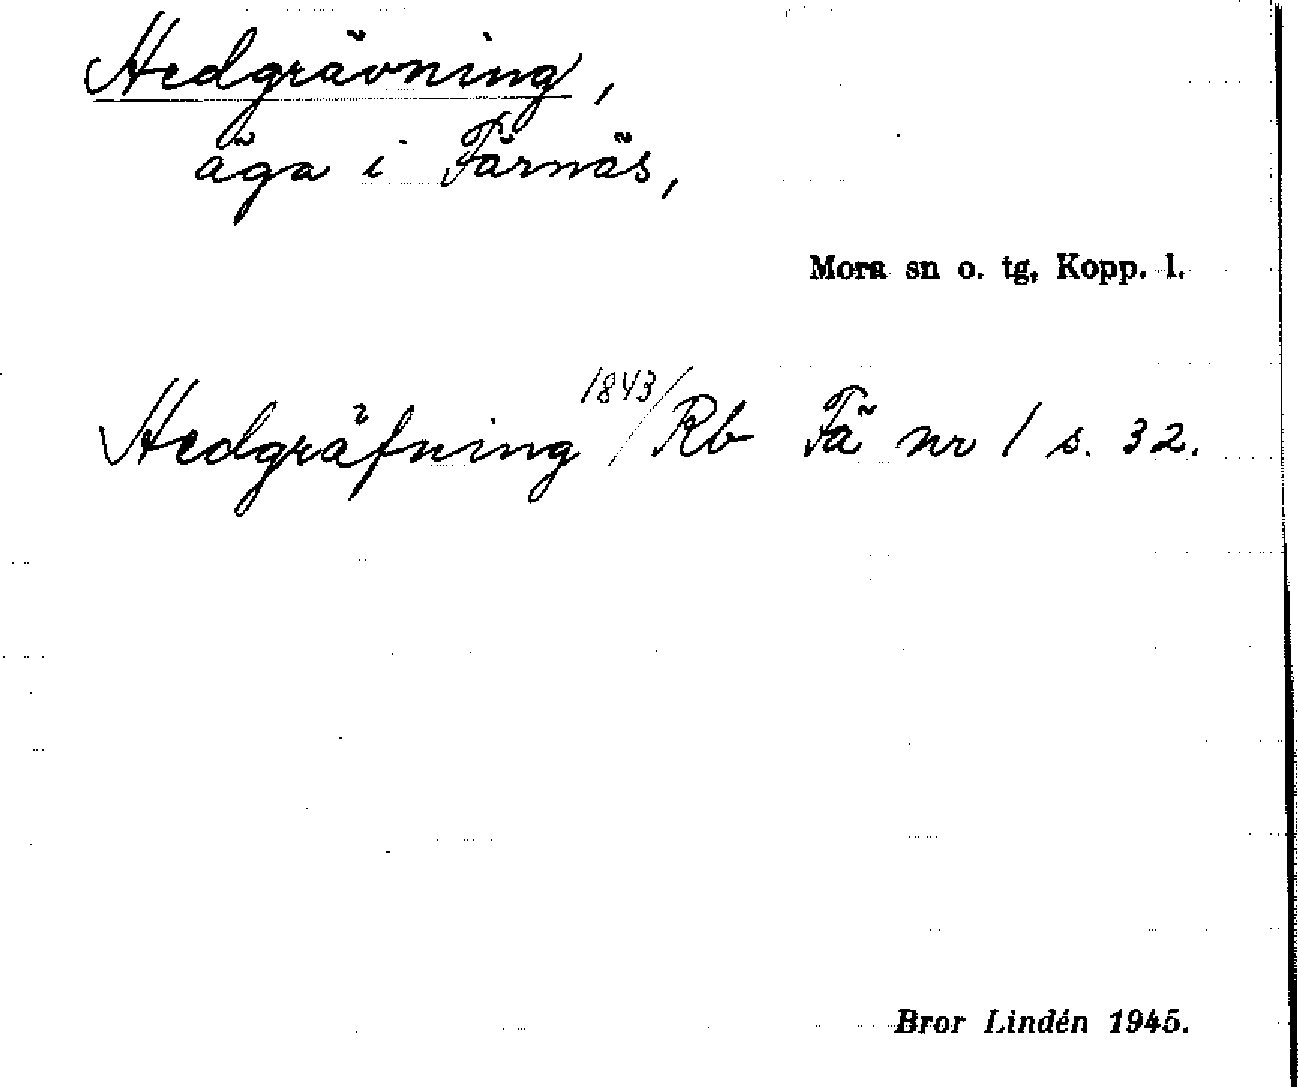 Hedgrävning,
äga i Färnäs,
Mora sn o. tg, Kopp. l.
Hedgräfning 1843/Rb Fä nr 1 s. 32.
Bror Lindén 1945.